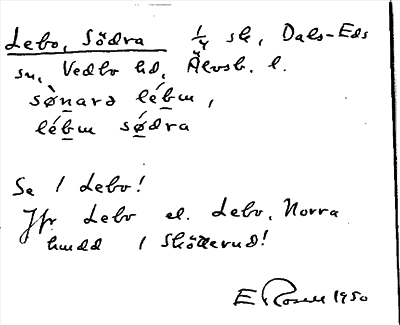 Lebo, Södra 1/4 sk, Dals-Eds
sn, Vedbo hd, Älvsb. l.
sø̀narə lé́bɯ,
lé́bɯ sødra
Se / Lebo!
Jfr Lebo el. Lebo, Norra
hmdd /
E Rosell 1950